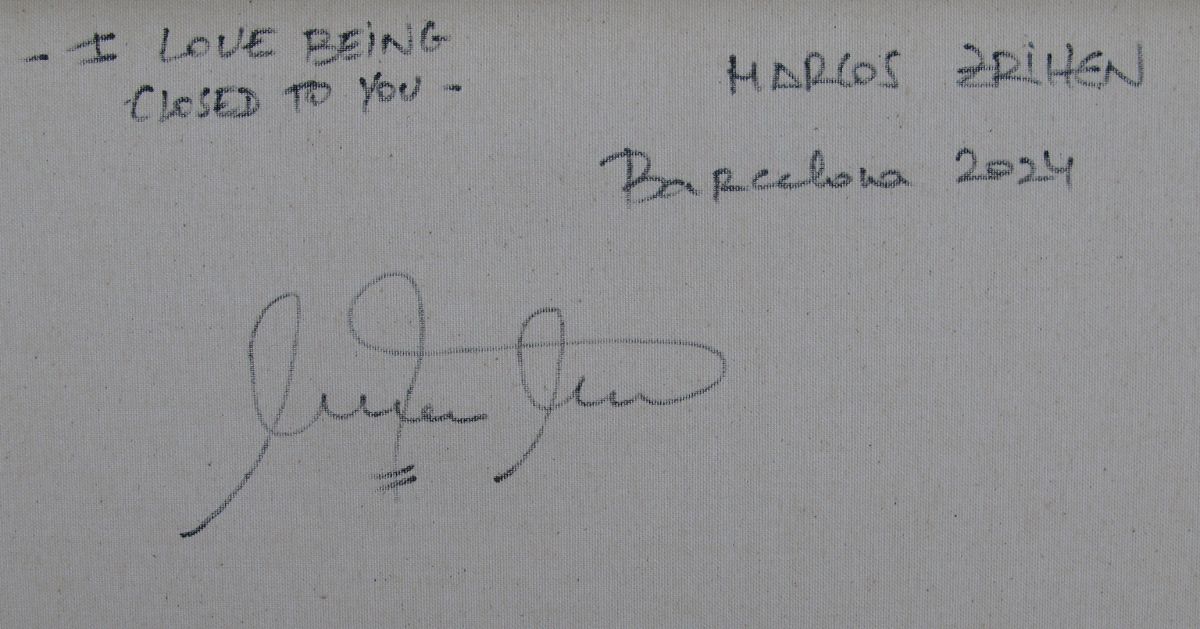 - I LOVE BEING
CLOSED TO YOU -
MARCOS ZRIHEN
Barcelona 2024